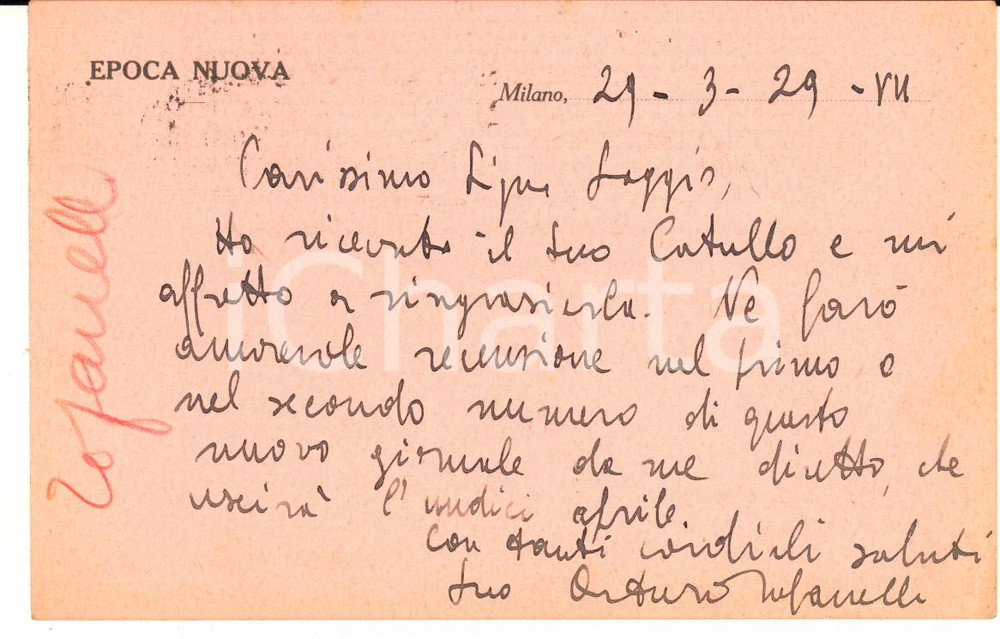 EPOCA NUOVA
Milano, 29 - 3 - 29 - VII
Carissimo
Ho ricevuto il suo Catullo e mi
affretto a ringraziarla. Ne farò
amorevole recensione nel primo o
nel secondo numero di questo
nuovo giornale da me diretto, che
uscirà l'undici aprile.
Con tanti cordiali saluti
suo Arturo Tofanelli
Tofanelli
iCharta